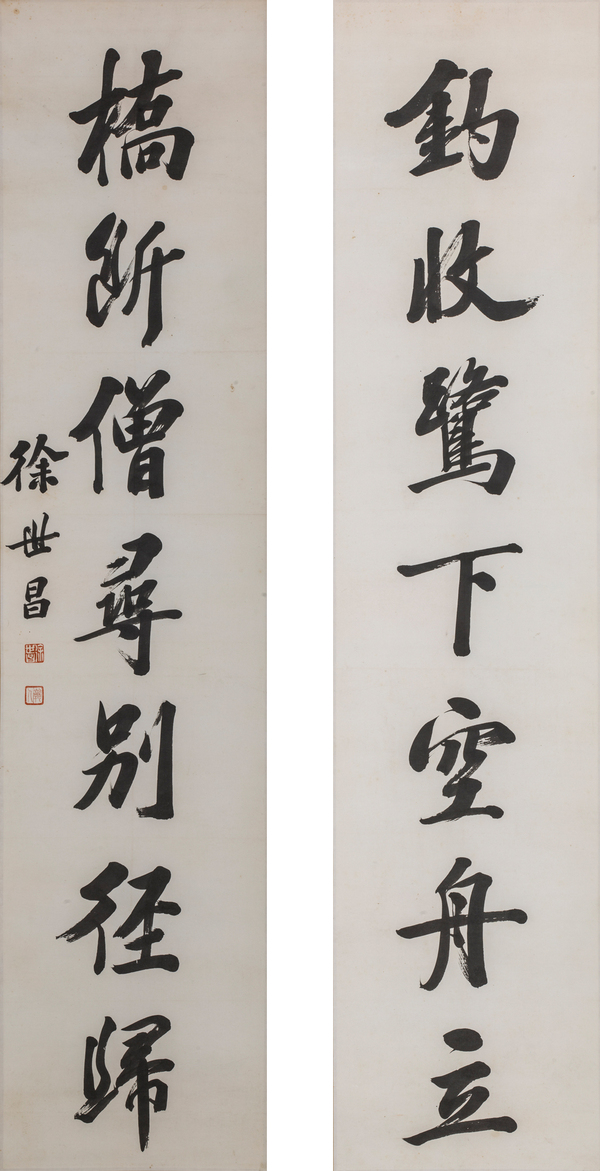 釣收鷺下空舟立
橋斷僧尋別徑歸
徐世昌